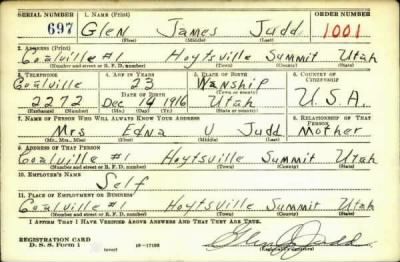 SERIAL NUMBER 1. NAME (Print) ORDER NUMBER
697 Glen James Judd 1001
(First) (Middle) (Last)
2. ADDRESS (Print)
Coalville #1 Hoytsville Summit Utah
(Number and street or R. F. D. number) (Town) (County) (State)
3. TELEPHONE 4. AGE IN YEARS 5. PLACE OF BIRTH 6. COUNTRY OF CITIZENSHIP
Coalville 23 Wanship
DATE OF BIRTH (Town or county)
2272 Dec 14 1916 Utah U.S.A.
(Exchange) (No.) (Mo.) (Day) (Yr.) (State or country)
7. NAME OF PERSON WHO WILL ALWAYS KNOW YOUR ADDRESS 8. RELATIONSHIP OF THAT PERSON
Mrs Edna V Judd Mother
(Mr., Mrs., Miss) (First) (Middle) (Last)
9. ADDRESS OF THAT PERSON
Coalville #1 Hoytsville Summit Utah
(Number and street or R. F. D. number) (Town) (County) (State)
10. EMPLOYER'S NAME
Self
11. PLACE OF EMPLOYMENT OR BUSINESS
Coalville #1 Hoytsville Summit Utah
(Number and street or R. F. D. number) (Town) (County) (State)
I AFFIRM THAT I HAVE VERIFIED ABOVE ANSWERS AND THAT THEY ARE TRUE.
REGISTRATION CARD
D. S. S. Form 1 (over) 16—17105 Glen J Judd